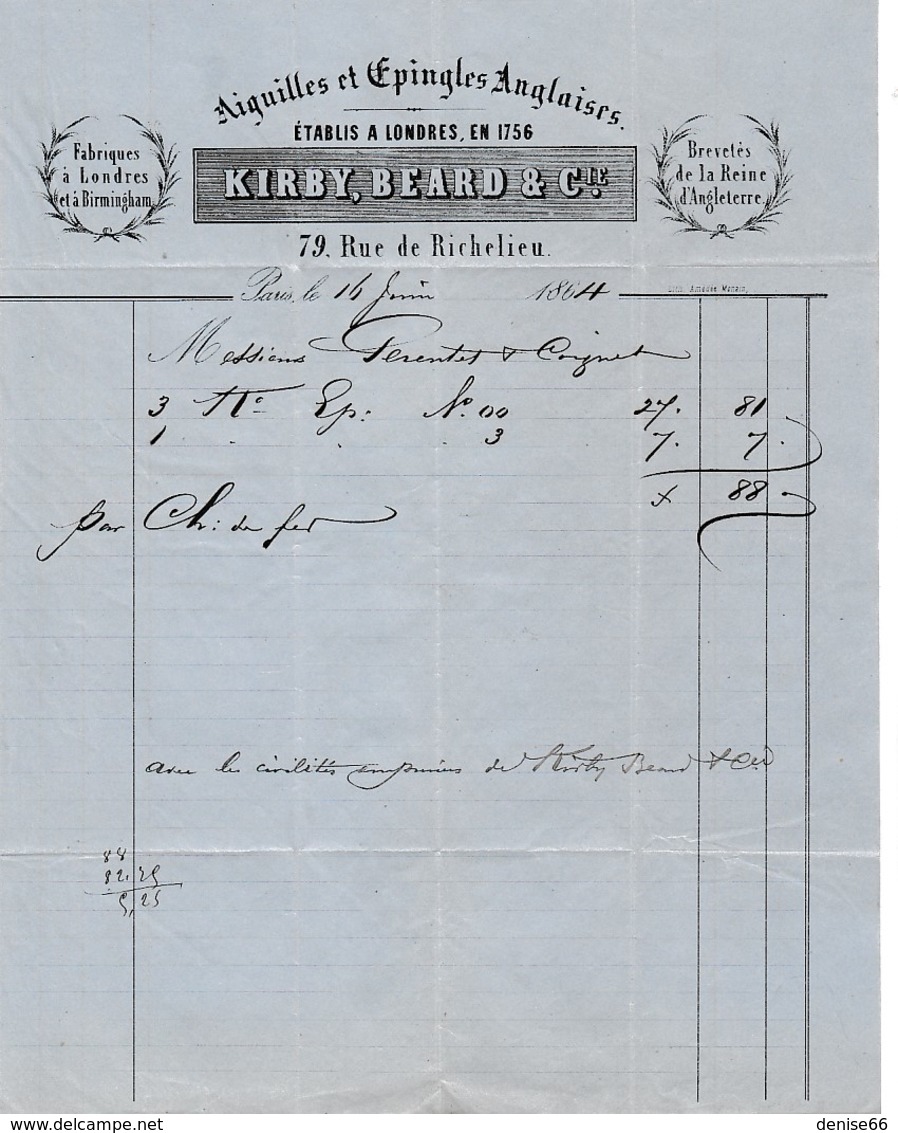 Aiguilles et Epingles Anglaises.
ÉTABLIS A LONDRES, EN 1756
Fabriques
à Londres
et à Birmingham
KIRBY, BEARD & CIE
Brevetés
de la Reine
d'Angleterre
79, Rue de Richelieu.
Paris, le 16 Juin 1864
Messieurs & Coignet
3 Ep: No. 00 27. 81
1 " " 3 7. 7.
88
par Ch: de fer
avec les civilités de Kirby Beard & Cie
88
82.75
5,25
www.delcampe.net
denise66